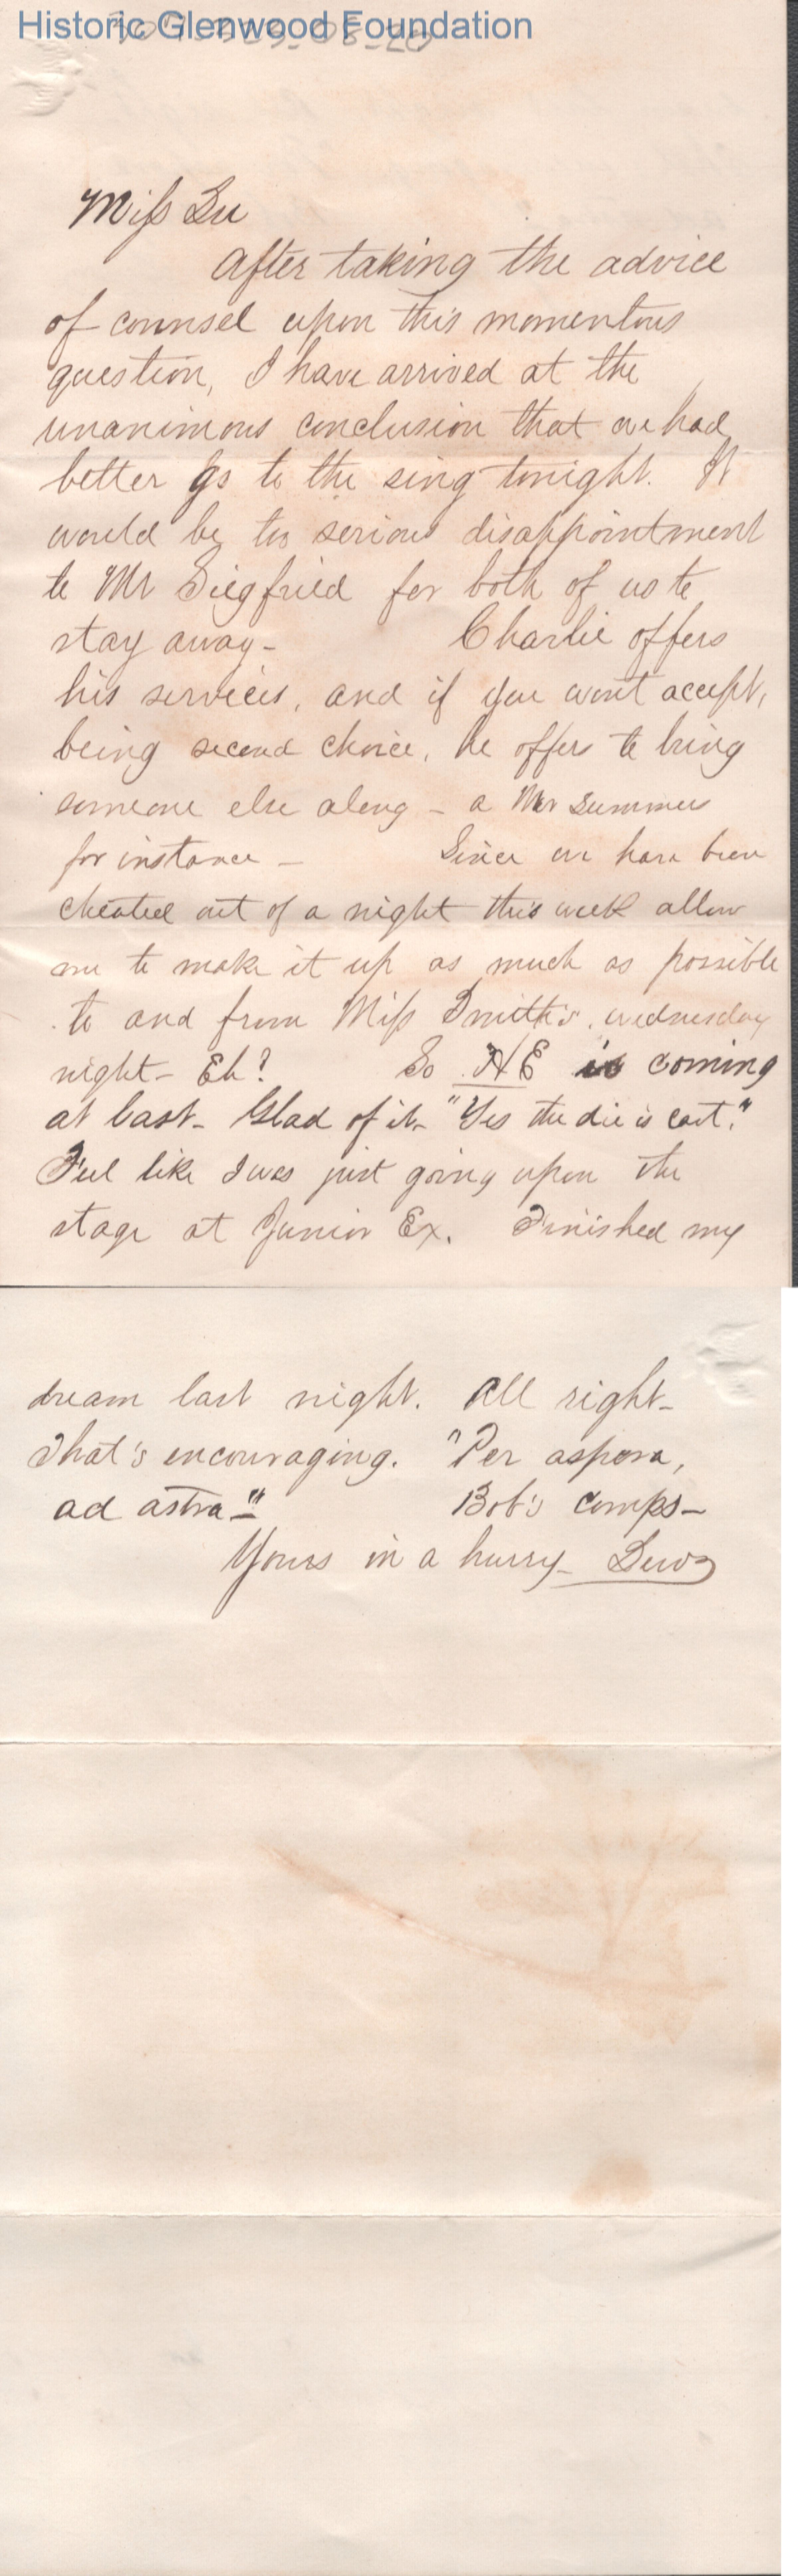 Historic Glenwood Foundation
Miss Lu
After taking the advice
of counsel upon this momentous
question, I have arrived at the
unanimous conclusion that we had
better go to the sing tonight. It
would be too serious disappointment
to Mr Siegfried for both of us to
stay away - Charlie offers
his services, and if you wont accept,
being second choice, he offers to bring
someone else along - a Mr Summers
for instance - Since we have been
cheated out of a night this week allow
me to make it up as much as possible
to and from Miss Smith's, wednesday
night - Eh? So HE is coming
at last - Glad of it - "Yes the die is cast."
Feel like I was just going upon the
stage at Junior Ex. Finished my
dream last night. All right -
That's encouraging. "Per aspera,
ad astra -" Bob's comps -
Yours in a hurry -